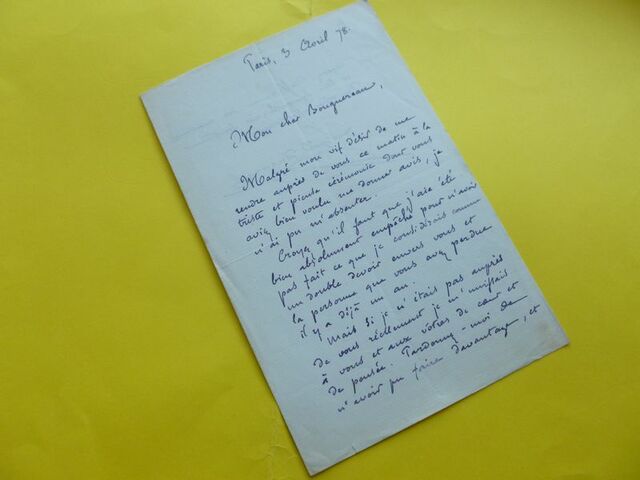 Paris, 3 Avril 78.
Mon cher Bouguereau,
Malgré mon vif désir de me
rendre auprès de vous ce matin à la
triste et pieuse cérémonie dont vous
aviez bien voulu me donner avis, je
n'ai pu m'absenter.
Croyez qu'il faut que j'aie été
bien absolument empêché pour n'avoir
pas fait ce que je considérais comme
un double devoir envers vous et
la personne que vous avez perdue
il y a déjà un an.
Mais si je n'étais pas auprès
de vous réellement je m'unissais
à vous et aux vôtres de cœur et
de pensée. Pardonnez-moi de
n'avoir pu faire davantage, et